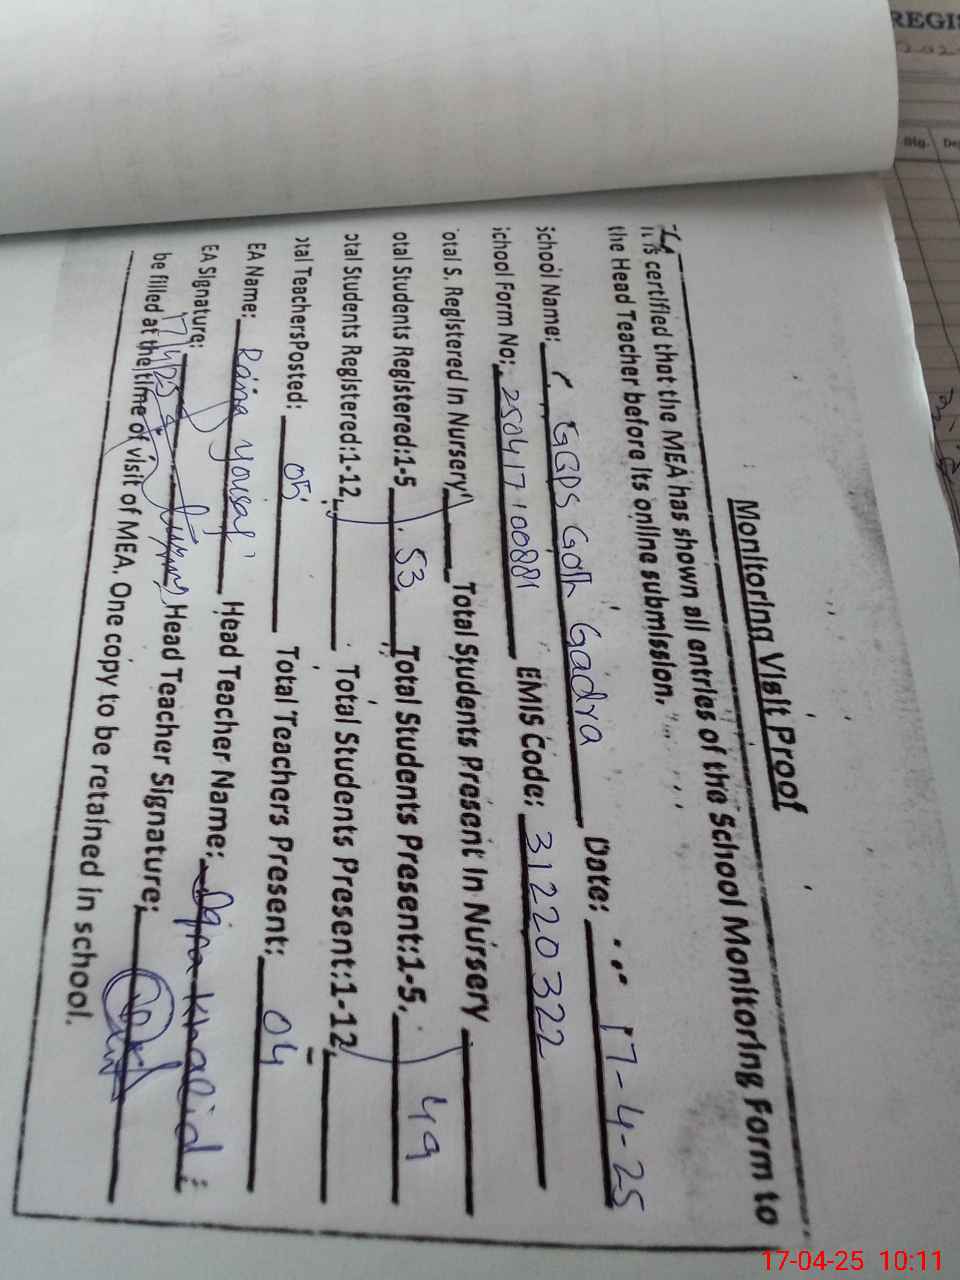 Monitoring Visit Proof
It is certified that the MEA has shown all entries of the School Monitoring Form to
the Head Teacher before its online submission.
School Name: GGPS Goth Gadra Date: 17-4-25
School Form No: 250417100881 EMIS Code: 31220322
otal S. Registered In Nursery Total Students Present In Nursery
otal Students Registered:1-5 53 Total Students Present:1-5. 49
otal Students Registered:1-12 Total Students Present:1-12
otal TeachersPosted: 05 Total Teachers Present: 04
EA Name: Raina yousaf Head Teacher Name: Iqra Khalid
EA Signature: 17/4/25 Head Teacher Signature:
be filled at the time of visit of MEA. One copy to be retained in school.
REGIS
Sig. De
17-04-25 10:11